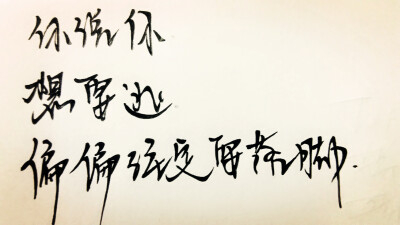 你说你
想要逃
偏偏注定要落脚.